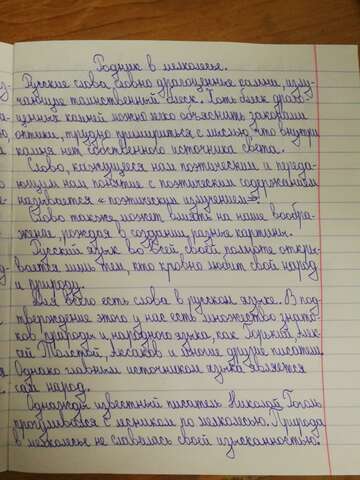 Родник в мелколесье.
Русские слова, словно драгоценные камни, излу-
чающие таинственный блеск. Хоть блеск драго-
ценных камней можно легко объяснить законами
оптики, трудно примириться с мыслью, что внутри
камня нет собственного источника света.
Слово, кажущееся нам поэтическим и переда-
ющим нам понятие с поэтическим содержанием
называется « поэтическим излучением».
Слово также может влиять на наше вообра-
жение, рождая в создании, разные картины.
Русский язык во всей, своей полноте откры-
вается лишь тем, кто кровно любит свой народ
и природу.
Для всего есть слова в русском языке. В под-
тверждение этого у нас есть множество знато-
ков природы и, народного языка, как Горький, Алек-
сей Толстой, Аксаков и многие другие писатели.
Однако главным источником языка является
сам народ.
Однажды известный писатель Николай Гоголь
прогуливался с лесником по мелколесью. Природа
в мелколесье не славилась своей изысканностью.